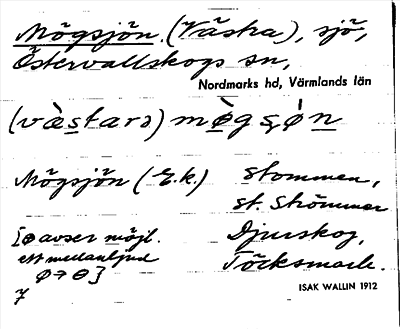 Mögsjön (Västra), sjö,
Östervallskogs sn,
Nordmarks hd, Värmlands län
(vàstarə) mø̀gsjøn
Mögsjön (E.k.)
[ɵ avser möjl.
ett mellanljud
ø→ɵ]
7
Stommen,
st. Strömmer
Djurskog,
Töcksmark.
ISAK WALLIN 1912